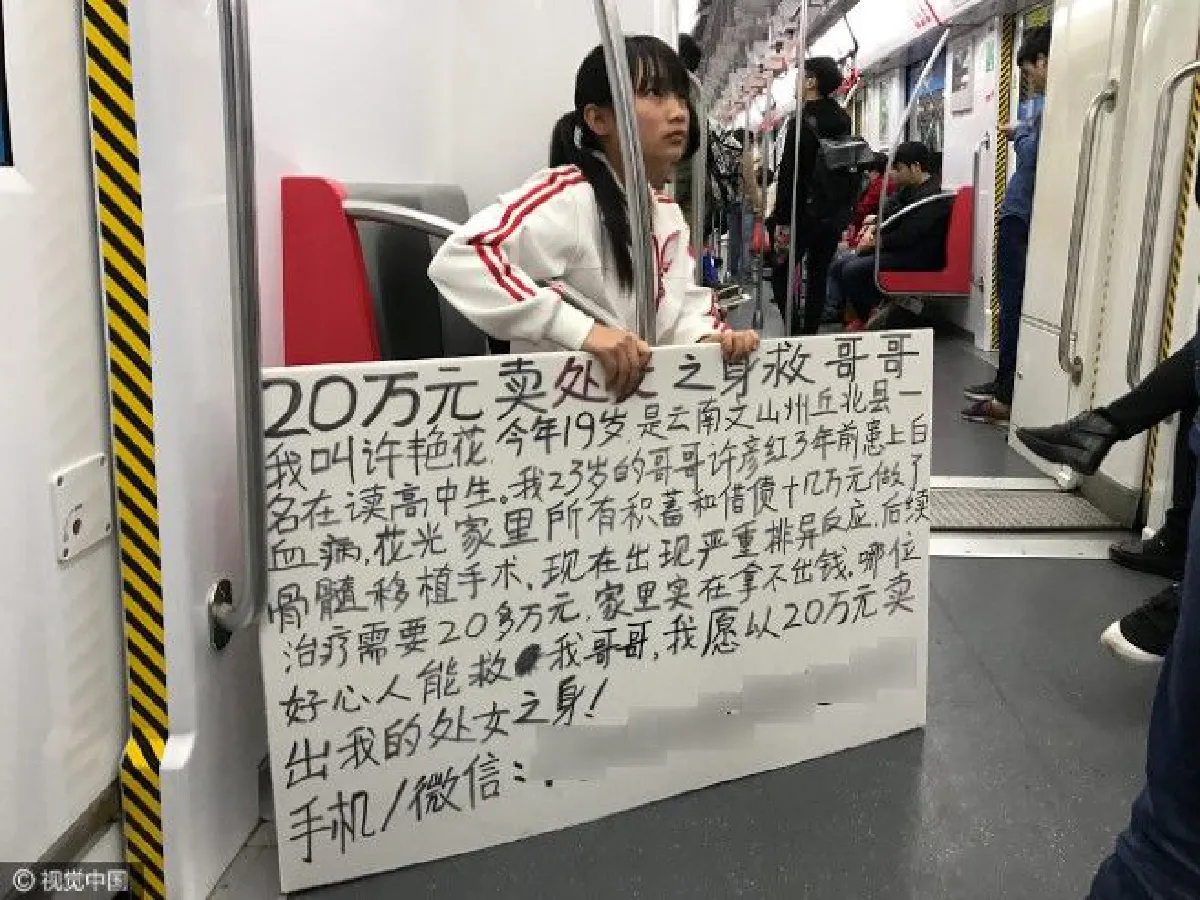 20万元卖处女之身救哥哥
我叫许艳花,今年19岁,是云南文山州丘北县一
名在读高中生。我23岁的哥哥许彦红3年前患上白
血病,花光家里所有积蓄和借债十几万元做了
骨髓移植手术,现在出现严重排异反应,后续
治疗需要20多万元,家里实在拿不出钱,哪位
好心人能救我哥哥,我愿以20万元卖
出我的处女之身!
手机/微信:
©视觉中国